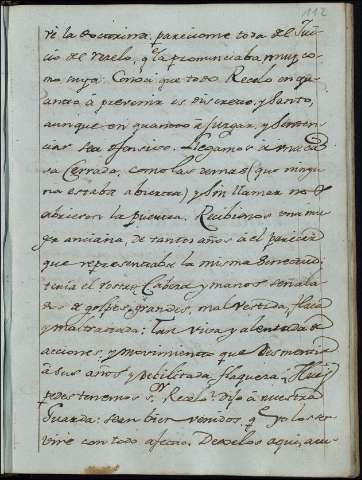 112
ré la Doctrina, pareciome toda del Jui-
cio del recelo, q.e la pronunciaba muy co-
mo suya. Conoci que todo Recelo en qu-
anto à presumir es discreto, y Santo,
aunque en quanto a Juzgar, y Senten-
ciar sea ofensivo. Llegamos à una ca-
sa Cerrada, como las demas (que ningu-
na estaba abierta) y sin llamar nos
abrieron la puerta. Recibionos una mu-
ger anciana, de tantos años à el parecer
que representaba la misma senectud:
tenia el rostro, Cabeza y manos señala-
das de golpes grandes, mal vestida, flaca
y maltratada: tan viva y alentada de
acciones, y movimientos que desmentia
à sus años, y debilitada flaqueza: Hues-
pedes tenemos S.or Recelo? Dijo à nuestra
Guarda: sean bien venidos q.e yo los ser-
viré con todo afecto. Dexelos aqui, a su